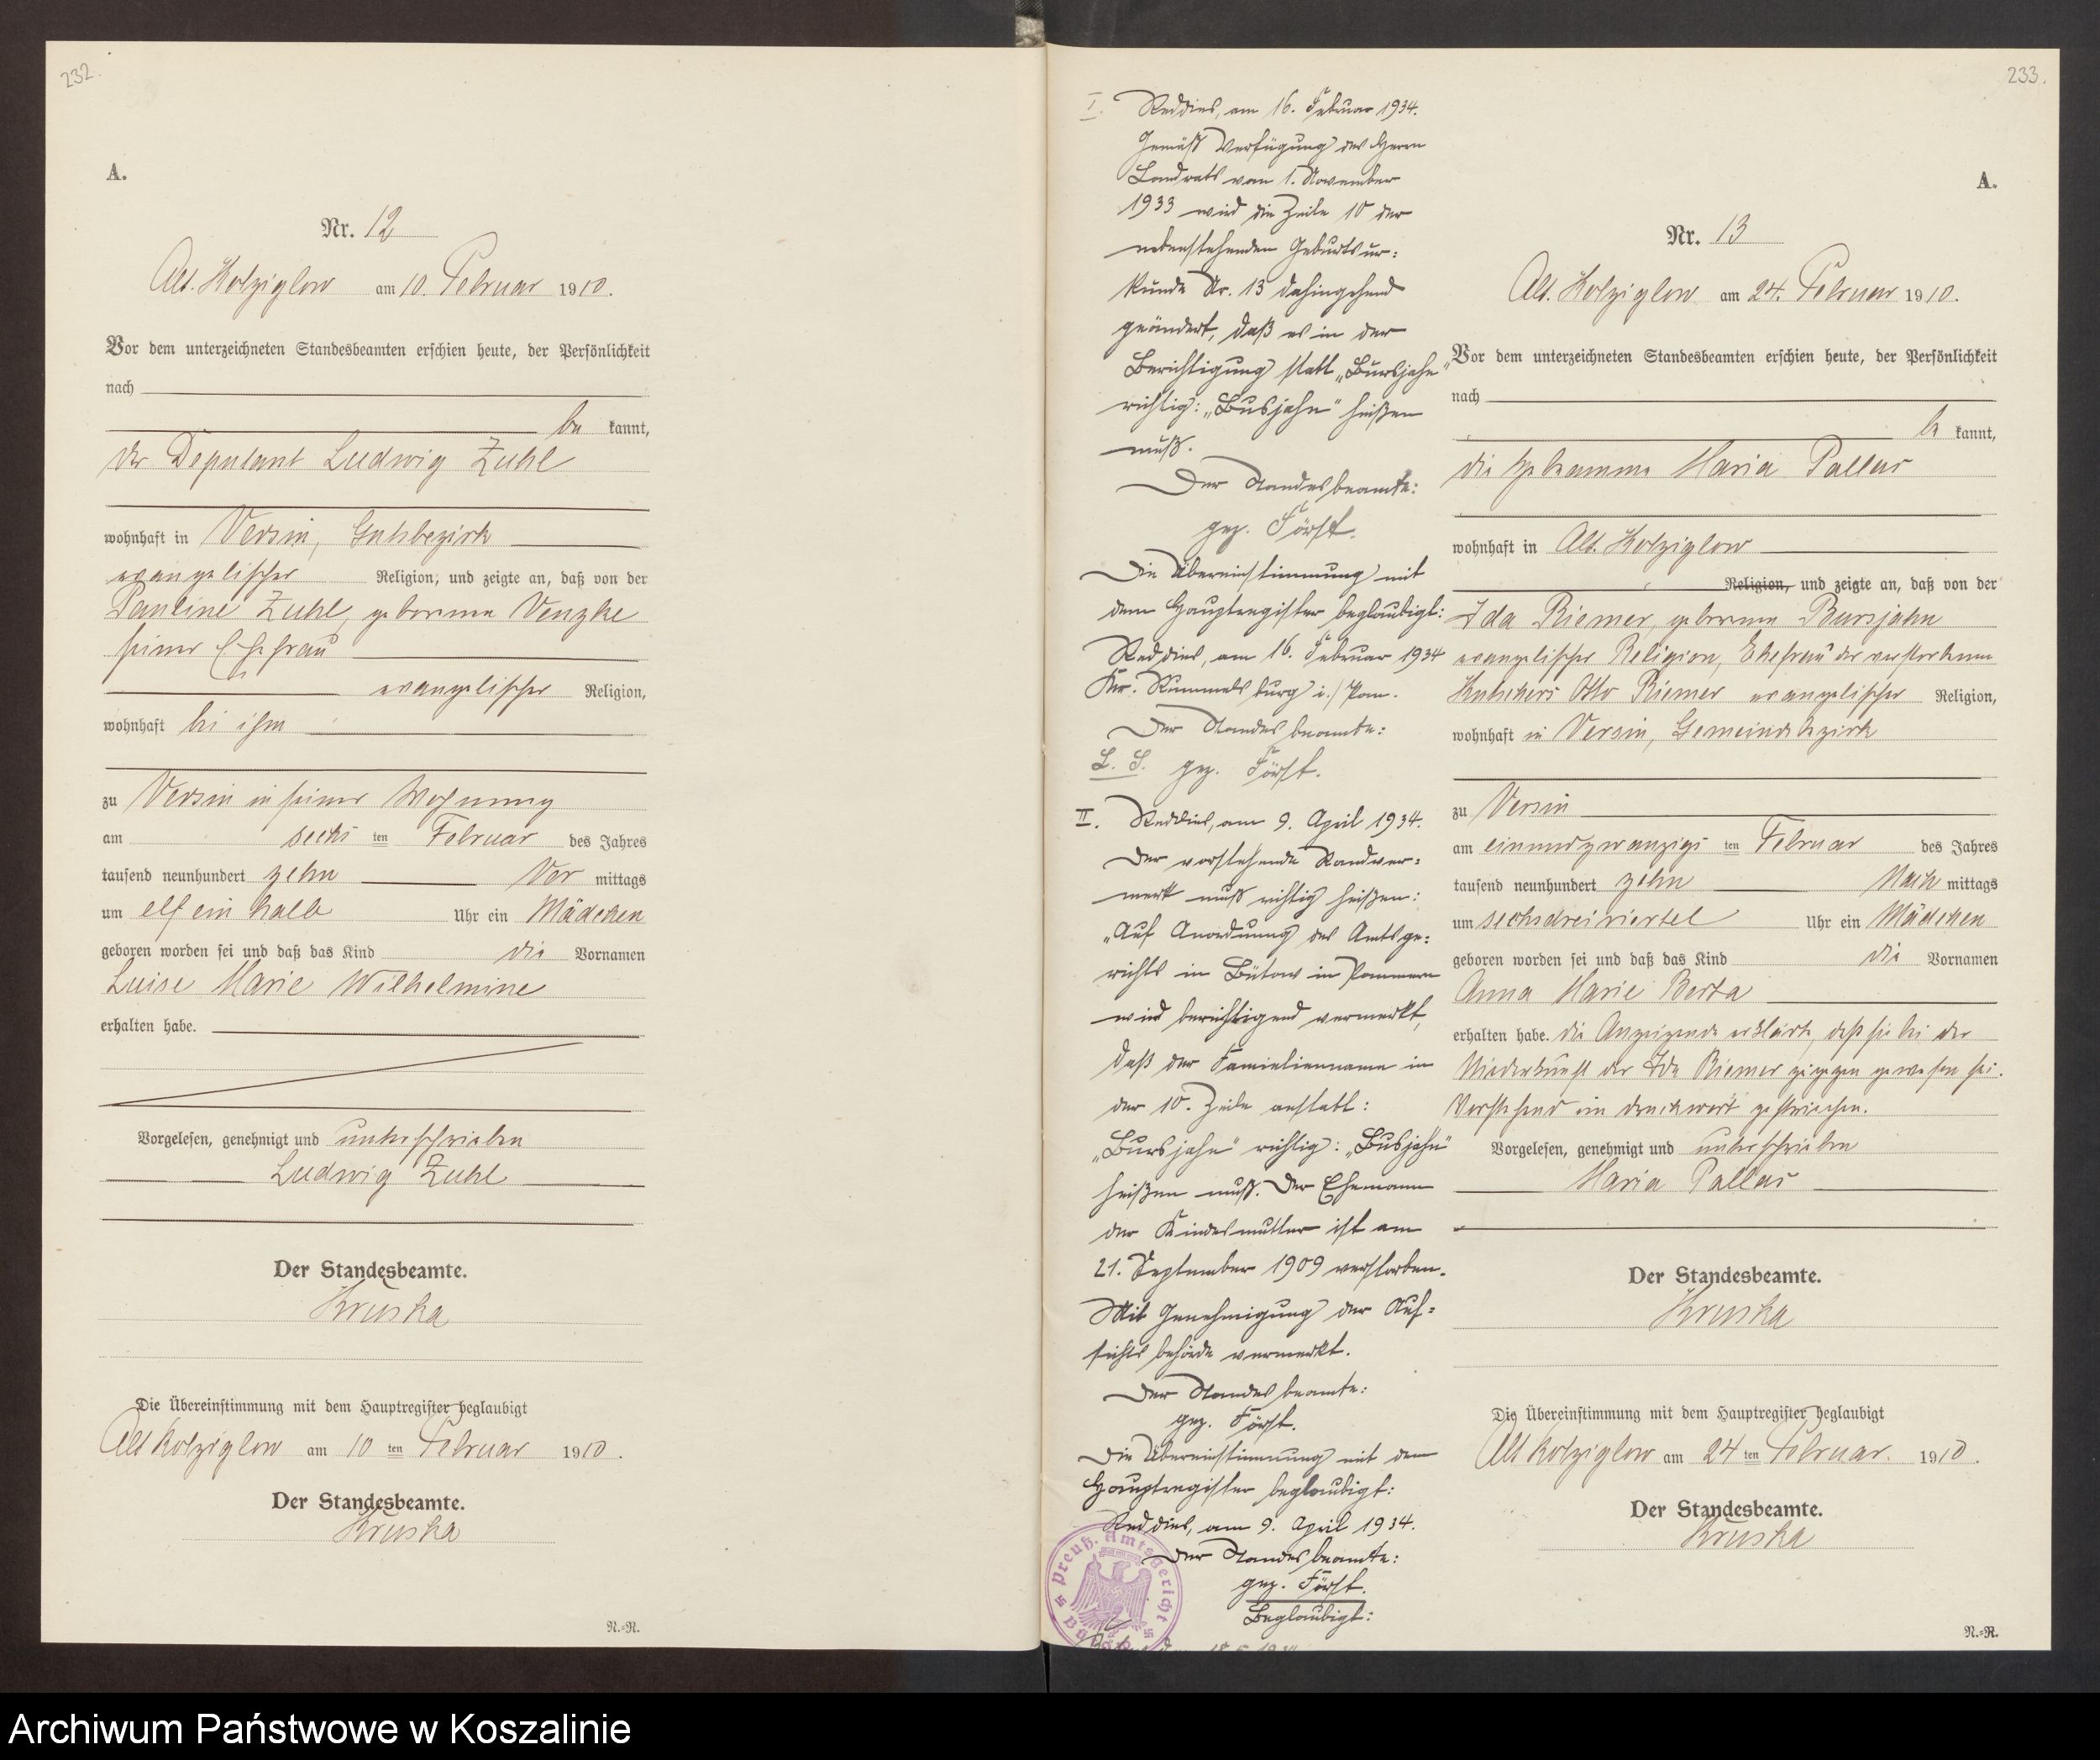 232.
A.
Nr. 12
Alt. Kolziglow am 10. Februar 1910.
Vor dem unterzeichneten Standesbeamten erschien heute, der Persönlichkeit
nach
be kannt,
der Deputant Ludwig Zuhl
wohnhaft in Versin, Gutsbezirk
evangelischer Religion, und zeigte an, daß von der
Pauline Zuhl, geborene Venzke
seiner Ehefrau
evangelischer Religion,
wohnhaft bei ihm
zu Versin in seiner Wohnung
am sechs ten Februar des Jahres
tausend neunhundert zehn Vor mittags
um elf ein halb Uhr ein Mädchen
geboren worden sei und daß das Kind die Vornamen
Luise Marie Wilhelmine
erhalten habe.
Vorgelesen, genehmigt und unterschrieben
Ludwig Zuhl
Der Standesbeamte.
Kruska
Die Übereinstimmung mit dem Hauptregister beglaubigt
Alt Kolziglow am 10 ten Februar 1910.
Der Standesbeamte.
Kruska
N.=R.
233.
I. Reddies, am 16. Februar 1934.
Gemäß Verfügung des Herrn
Landrats vom 1. November
1933 wird die Zeile 10 der
nebenstehenden Geburtsur=
kunde Nr. 13 dahingehend
geändert, daß es in der
Berichtigung statt „Bursjahn"
richtig: „Busjahn" heißen
muß.
Der Standesbeamte:
gez. Först.
Die Übereinstimmung mit
dem Hauptregister beglaubigt:
Reddies, am 16. Februar 1934
Kr. Rummelsburg i./Pom.
Der Standesbeamte:
L. S. gez. Först.
II. Reddies, am 9. April 1934.
Der vorstehende Randver=
merk muß richtig heißen:
„Auf Anordnung des Amtsge=
richts in Bütow in Pommern
wird berichtigend vermerkt,
daß der Familienname in
der 10. Zeile anstatt:
„Bursjahn" richtig: „Busjahn"
heißen muß. Der Ehemann
der Kindesmutter ist am
21. September 1909 verstorben.
Mit Genehmigung der Auf=
sichtsbehörde vermerkt.
Der Standesbeamte:
gez. Först.
Die Übereinstimmung mit dem
Hauptregister beglaubigt:
Reddies, am 9. April 1934.
Der Standesbeamte:
gez. Först.
Beglaubigt:
Preuß. Amtsgericht
A.
Nr. 13
Alt. Kolziglow am 24. Februar 1910.
Vor dem unterzeichneten Standesbeamten erschien heute, der Persönlichkeit
nach
be kannt,
die Hebamme Maria Pallas
wohnhaft in Alt. Kolziglow
Religion, und zeigte an, daß von der
Ida Riemer, geborene Bursjahn
evangelischer Religion, Ehefrau des verstorbenen
Kutschers Otto Riemer evangelischer Religion,
wohnhaft in Versin, Gemeindebezirk
zu Versin
am einundzwanzigs ten Februar des Jahres
tausend neunhundert zehn Nach mittags
um sechsdreiviertel Uhr ein Mädchen
geboren worden sei und daß das Kind die Vornamen
Anna Marie Berta
erhalten habe. Die Anzeigende erklärte, daß sie bei der
Niederkunft der Ida Riemer zugegen gewesen sei.
Vorstehend ein Druckwort gestrichen.
Vorgelesen, genehmigt und unterschrieben
Maria Pallas
Der Standesbeamte.
Kruska
Die Übereinstimmung mit dem Hauptregister beglaubigt
Alt Kolziglow am 24 ten Februar. 1910.
Der Standesbeamte.
Kruska
N.=R.
Archiwum Państwowe w Koszalinie